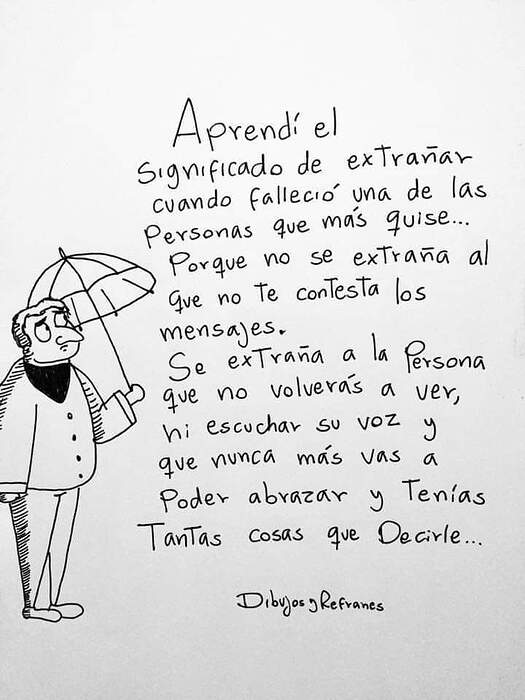 Aprendí el
significado de extrañar
cuando falleció una de las
Personas que más quise...
Porque no se extraña al
que no te contesta los
mensajes.
Se extraña a la Persona
que no volverás a ver,
ni escuchar su voz y
que nunca más vas a
Poder abrazar y Tenías
Tantas cosas que Decirle...
Dibujos y Refranes